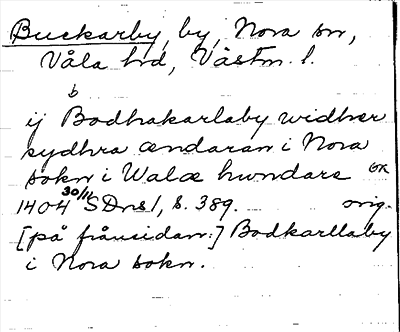 Buckarby, by, Nora sn,
Våla hd, Västm. l.
b
ij Bodhakarlaby widher
sydhra ændaran i Nora
sokn i Walæ hundare
1404 30/11 SDns 1, s. 389. orig.
[på frånsidan:] Bodkarllaby
i Nora sokn.